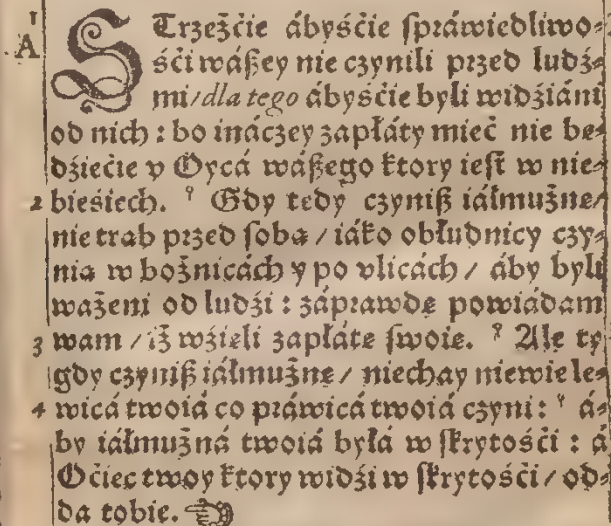 1
A STrzeżćie ábyśćie ſpráwiedliwo⸗
śći wáßey nie czynili przed ludź⸗
mi/dla tego ábyśćie byli widźiáni
od nich : bo ináczey zapłáty mieć nie be⸗
dźiećie v Oycá wáßego ktory ieſt w nie⸗
2 bieśiech. Gdy tedy czyniß iáłmużne/
nie trąb przed ſobą / iáko obłudnicy czy⸗
nią w bożnicách y po vlicách / áby byli
ważeni od ludźi : záprawdę powiádam
3 wam / iż wźięli zapłátę ſwoię. Ale ty
gdy czyniß iáłmużnę / niechay niewie le⸗
4 wicá twoiá co práwicá twoiá czyni: á⸗
by iáłmużná twoiá byłá w ſkrytośći : á
Oćiec twoy ktory widźi w ſkrytośći / od⸗
da tobie. ☜